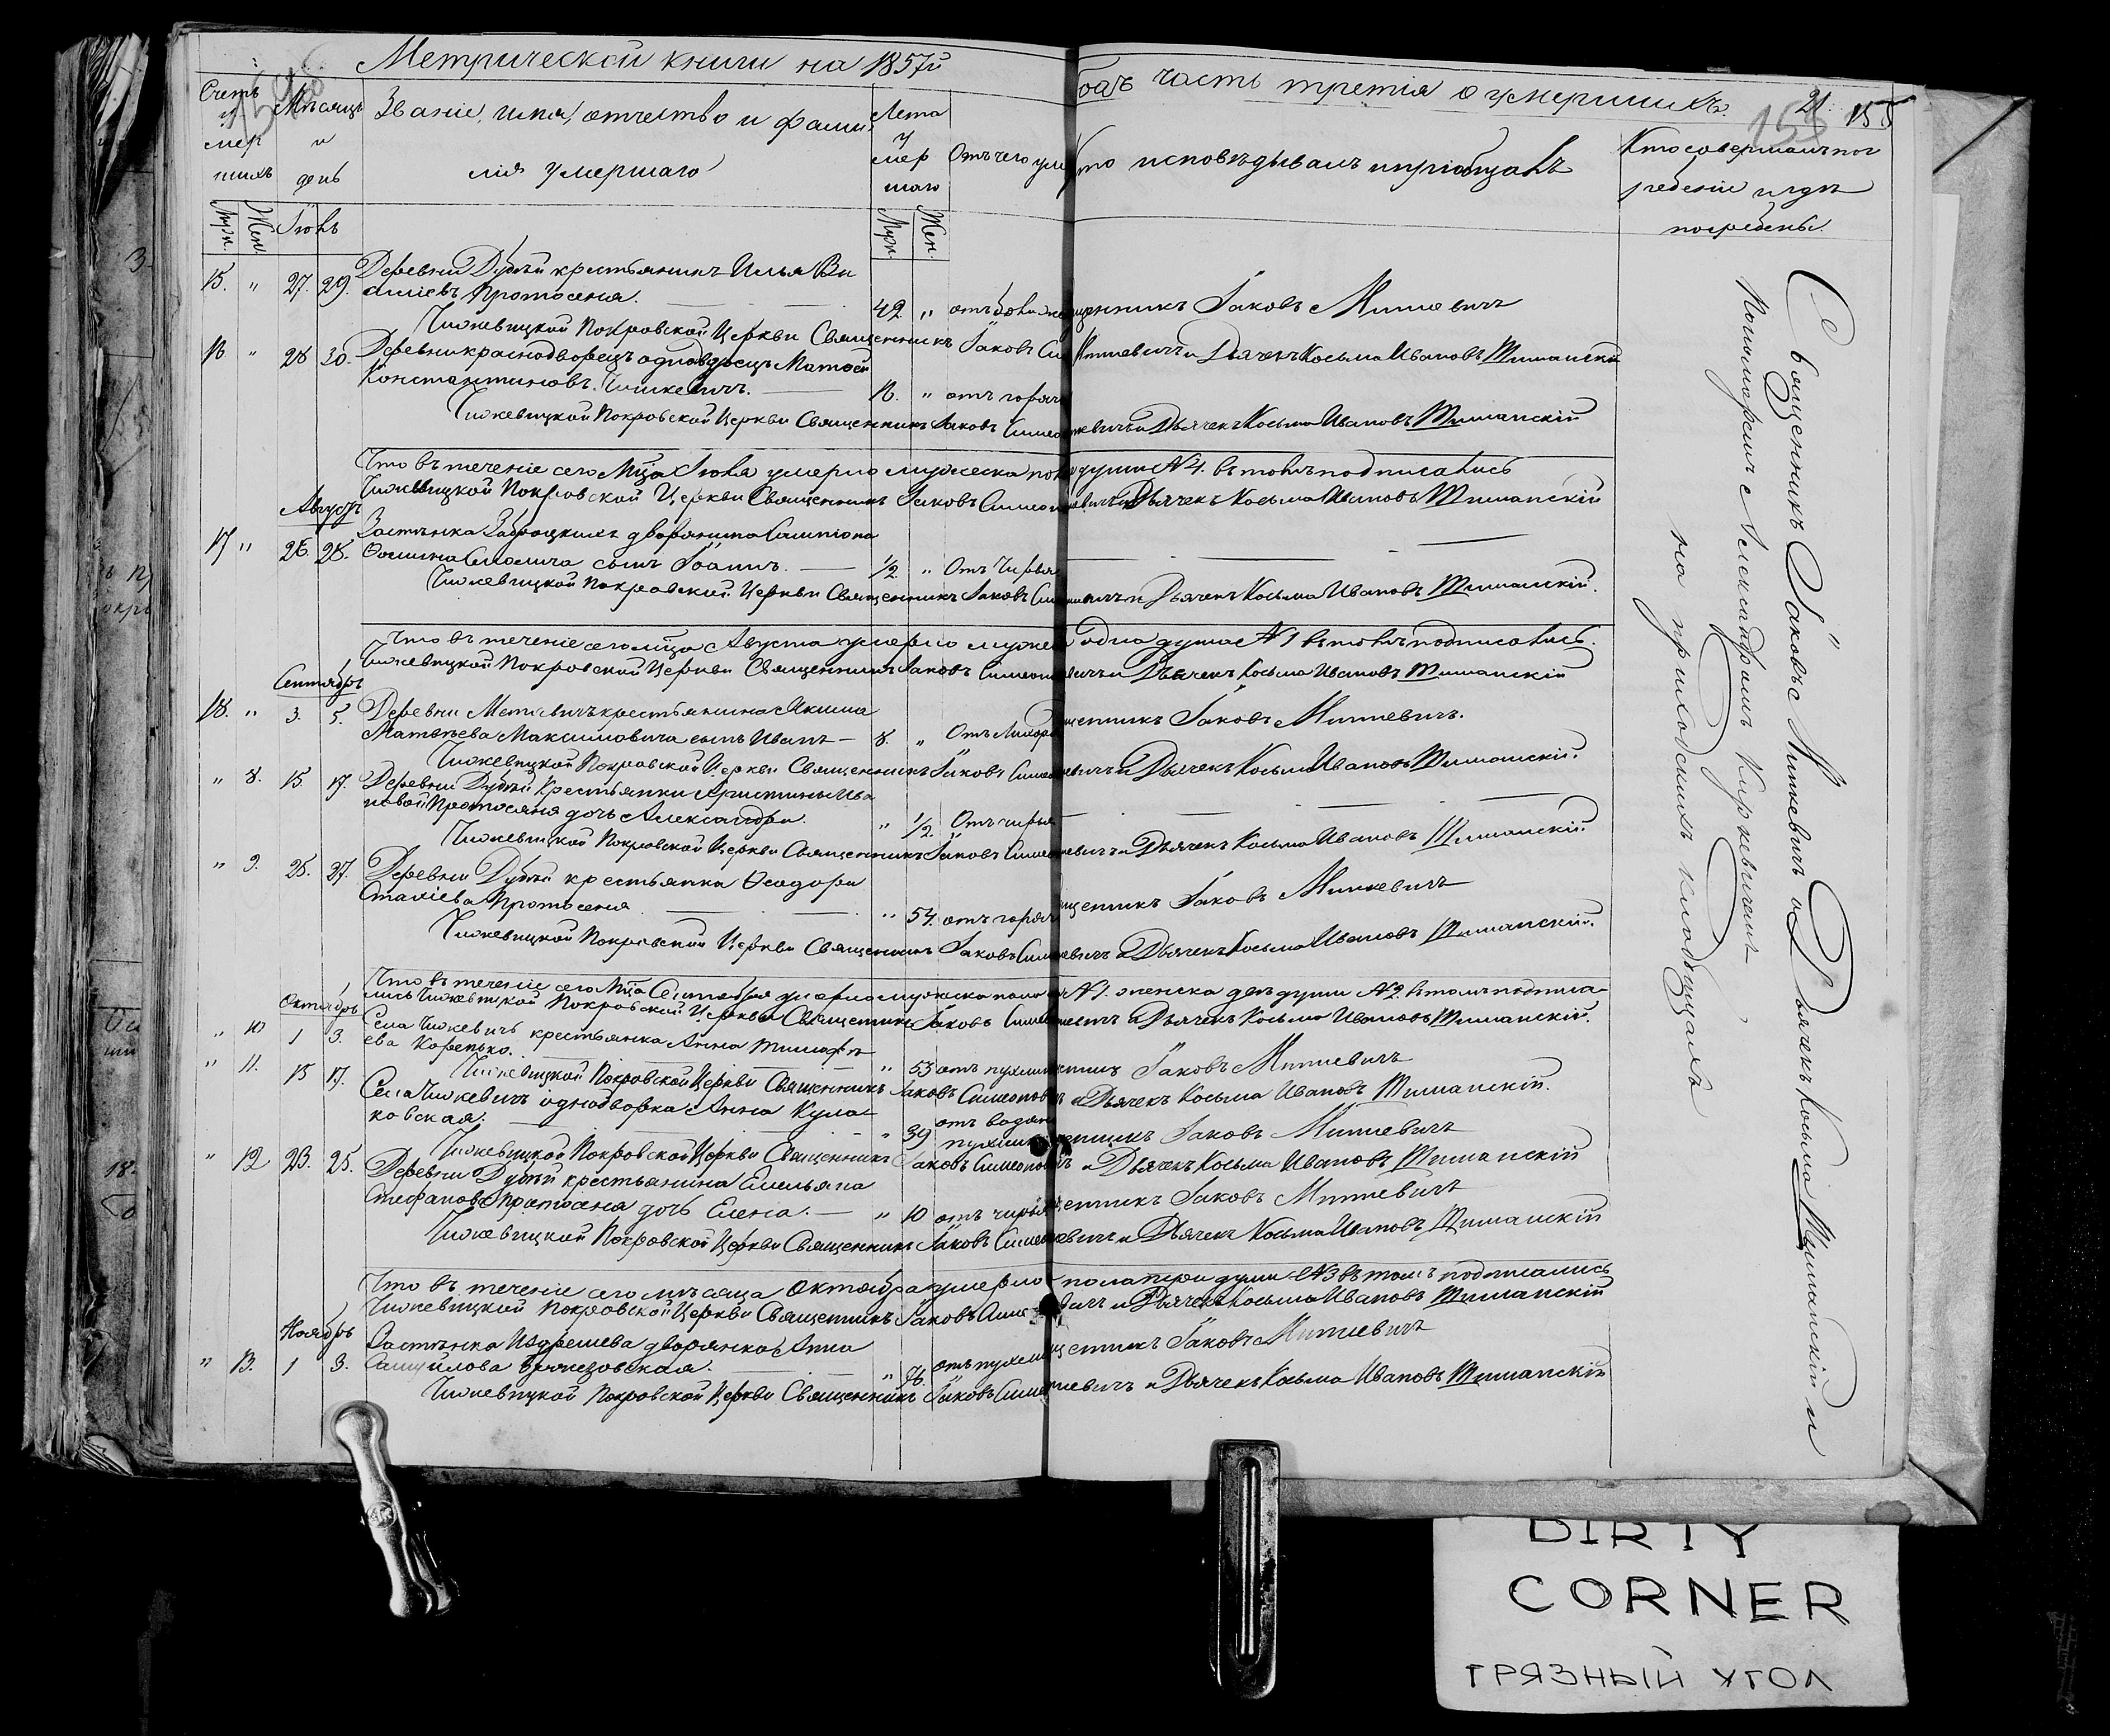 Метрической книги на 1857й
годъ часть третія о умершихъ.
21. 155
Счетъ у мер шихъ
Мѣсяцъ и день
Званіе, имя, отчество и фами
лія умершаго
Лета у мер шаго
Отъ чего уме
Кто исповѣдывалъ и пріобщалъ
Кто совершалъ пог
ребеніе и гдѣ
погребены.
Муж. Жен. Іюль
Муж. Жен.
15. " 27. 29. Деревни Дубѣй крестьянинъ Илья Ва
силіевъ Протосеня. 42 "
щенникъ Іаковъ Миткевичъ
Чижевицкой Покровской Церкви Священникъ Іаковъ Си Миткевичъ и Дьячекъ Косьма Ивановъ Шиманскій
16 " 28 30. Деревни краснодворецъ однодворецъ Матѳей
Константиновъ 16. " отъ горяч
Чижевицкой Покровской Церкви Священникъ Іаковъ Симео ткевичъ и Дьячекъ Косьма Ивановъ Шиманскій
Что въ теченіе сего Мца Іюля умерло мужеска пола души №4. въ томъ подписались
Чижевицкой Покровской Церкви Священникъ Іаковъ Симеон и Дьячекъ Косьма Ивановъ Шиманскій
Августъ
17 " 26. 28. Застѣнка дворянина
сынъ Іоаннъ. 1/2 " Отъ Чирья
Чижевицкой Покровской Церкви Священникъ Іаковъ Сим и Дьячекъ Косьма Ивановъ Шиманскій.
Что въ теченіе сего мца Августа умерло мужеск одна душа №1 въ томъ подписались.
Чижевицкой Покровской Церкви Священникъ Іаковъ Симеон евичъ и Дьячекъ Косьма Ивановъ Шиманскій
Сентябрь
18. " 3. 5. Деревни Метявичъ крестьянина Якима
Матвѣева Максимовича сынъ Иванъ 8. " Отъ Лихора
щенникъ Іаковъ Миткевичъ.
Чижевицкой Покровской Церкви Священникъ Іаковъ Симео евичъ и Дьячекъ Косьма Ивановъ Шиманскій.
" 8. 15. 17. Деревни Дубѣй Крестьянки Христины Ива
новой Протосеня дочь Александра. " 1/2. Отъ чирья
Чижевицкой Покровской Церкви Священникъ Іаковъ Симео евичъ и Дьячекъ Косьма Ивановъ Шиманскій.
" 9. 25. 27. Деревни Дубѣй крестьянка Ѳеодора
Протосеня " 54. отъ горяч
щенникъ Іаковъ Миткевичъ
Чижевицкой Покровской Церкви Священникъ Іаковъ Сим евичъ и Дьячекъ Косьма Ивановъ Шиманскій.
Что въ теченіе сего Мца Сентября умерло мужеска пола №1. женска двѣ души №2. въ томъ подписа
лись Чижевицкой Покровской Церкви Священникъ Іаковъ Симео евичъ и Дьячекъ Косьма Ивановъ Шиманскій.
Октябрь
" 10 1 3. Села Чижевичъ крестьянка Анна Тимоѳѣ
ева Коренько. " 53 отъ пухлин
Іаковъ Миткевичъ
Чижевицкой Покровской Церкви Священникъ Іаковъ Симеонов и Дьячекъ Косьма Ивановъ Шиманскій.
" 11. 15 17. Села Чижевичъ однодворка Анна Кула
ковская. " 39 отъ водян пухлин
щенникъ Іаковъ Миткевичъ
Чижевицкой Покровской Церкви Священникъ Іаковъ Симеонов и Дьячекъ Косьма Ивановъ Шиманскій
" 12 23. 25. Деревни Дубѣй крестьянина Емельяна
Стефанова Протосеня дочь Елена. " 10 отъ чирья
щенникъ Іаковъ Миткевичъ
Чижевицкой Покровской Церкви Священникъ Іаковъ Симео евичъ и Дьячекъ Косьма Ивановъ Шиманскій
Что въ теченіе сего мѣсяца Октября умерло пола три души №3 въ томъ подписались
Чижевицкой Покровской Церкви Священникъ Іаковъ Симе вичъ и Дьячекъ Косьма Ивановъ Шиманскій
Ноябрь
" 13. 1 3. Застѣнка Издрешева дворянка Анна
Самуйлова " 76. отъ пухлин
щенникъ Іаковъ Миткевичъ
Чижевицкой Покровской Церкви Священникъ Іаковъ Симе ткевичъ и Дьячекъ Косьма Ивановъ Шиманскій
Священникъ Іаковъ Миткевичъ съ Дьячекъ Косьма Шиманскій и
Пономаремъ Александромъ Киркевичемъ
на приходскихъ кладбищахъ
DIRTY
CORNER
ГРЯЗНЫЙ УГОЛ